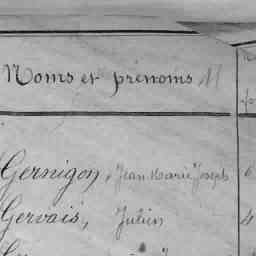 Noms et prénoms
Gernigon, Jean Marie Joseph
Gervais, Julien